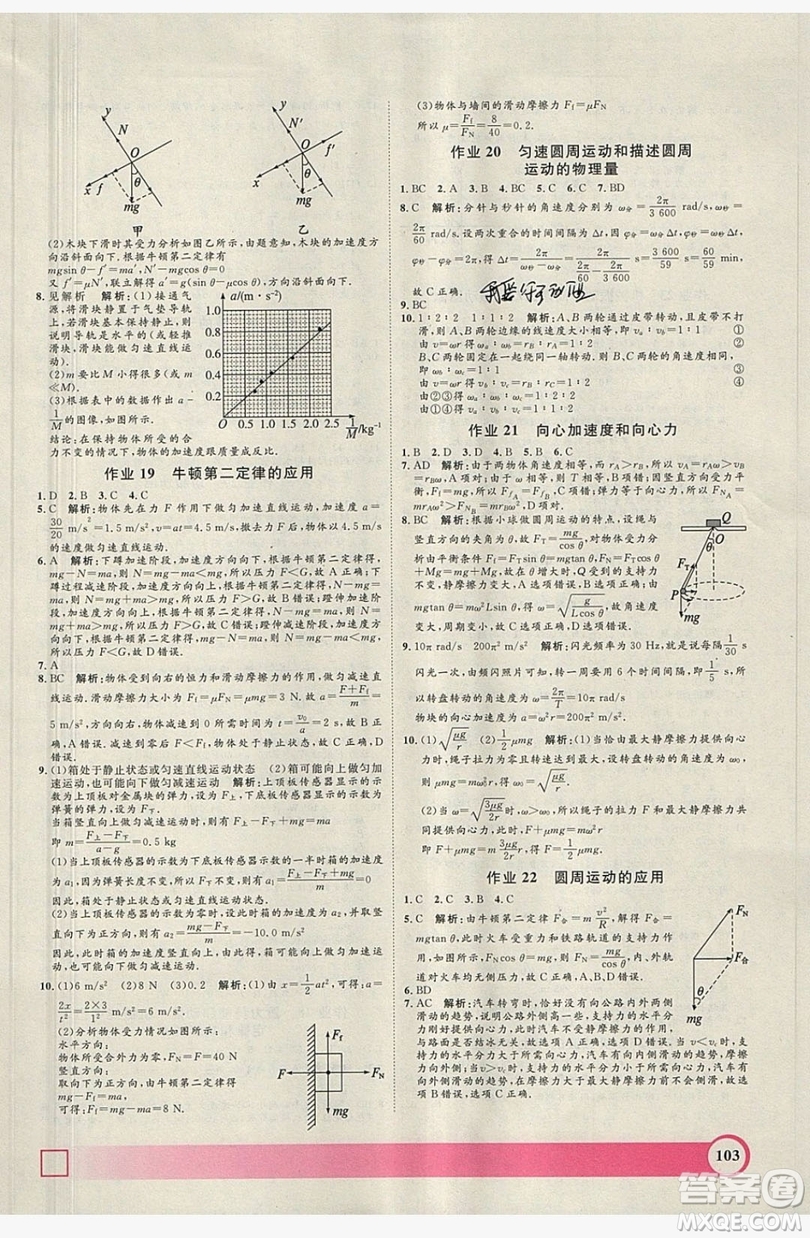 y
N
f
O
x
θ
mg
甲
y
N′
f′
O
x
θ
mg
乙
(2)木块下滑时其受力分析如图乙所示,由题意知,木块的加速度方
向沿斜面向下.根据牛顿第二定律有
mgsin θ−f′=ma′,联立解得 a′=g(sin θ−μcos θ),方向沿斜面向下
8.见解析 解析:(1)接通气
源,将滑块静置于气垫导轨
上,滑块基本静止不动,则
说明导轨是水平的(或轻推
滑块,滑块能做匀速直线运动).
(2)m 要比 M 小得多(或 m
≪M).
(3)根据表中的数据作出 a−
1/M的图像,如图所示.
结论:在保持物体所受的合
力不变的情况下,物体的加速度与质量成反比.
a/(m·s⁻²)
1.0
0.8
0.6
0.4
0.2
0 0.5 1.0 1.5 2.0 2.5
1/M/kg⁻¹
作业 19 牛顿第二定律的应用
1.D 2.B 3.C 4.C
5.C 解析:物体先在力 F 作用下做匀加速直线运动,加速度 a=
30/20 m/s²=1.5 m/s²,v=at=4.5 m/s,撤去力 F 后,物体以 4.5 m/s
的速度做匀速直线运动.
6.A 解析:下蹲加速阶段,加速度方向向下,根据牛顿第二定律得,
mg−N=ma,则 N=mg−ma<mg,所以压力 F<G,故 A 正确;下
蹲过程减速阶段,加速度方向向上,根据牛顿第二定律得,N−mg
=ma,则 N=mg+ma>mg,所以压力 F>G,故 B 错误;蹬伸加速
阶段,加速度方向向上,根据牛顿第二定律得,N−mg=ma,则 N
=mg+ma>mg,所以压力 F>G,故 C 错误;蹬伸减速阶段,加速度
方向向下,根据牛顿第二定律得,mg−N=ma,则 N=mg−ma<
mg,所以压力 F<G,故 D 错误.
7.A
8.BC 解析:物体受到向右的恒力和滑动摩擦力的作用,做匀减速直
线运动.滑动摩擦力大小为 Ff=μFN=μmg=3 N.故 a=(F+Ff)/m=
5 m/s²,方向向右,物体减速到 0 所需的时间为 t=v₀/a=2 s,B 正
确,A 错误.减速到零后,F<Ff,物体处于静止状态,不再运动,C 正
确,D 错误.
9.(1)箱处于静止状态或匀速直线运动状态 (2)箱可能向上做匀加
速运动,也可能向下做匀减速运动 解析:设金属块的质量为 m,上
顶板对金属块的弹力,设为 F上,下底板对弹簧的弹力,设为 F下,亦为
弹簧的弹力.
当箱竖直向上做匀减速运动时,有F上+mg−F下=ma
即 m=(F上−F下)/(a−g)=0.5 kg
(1)当上顶板传感器的示数为下底板传感器示数的一半时箱的加速度
为 a₁,因弹簧长度没变,所以 F下 不变,则 a₁=(mg+F上−F下)/m=
0,故箱处于静止或匀速直线运动状态.
(2)当上顶板传感器的示数为零时,设箱的加速度为 a₂,并取竖直
方向向下为正方向,则 a₂=(mg−F下)/m=−10.0 m/s²
由此可知,此时箱的加速度竖直向上,故箱可能向上做匀加速运
动,也可能向下做匀减速运动.
10.(1)6 m/s² (2)8 N (3)0.2 解析:(1)由 x=1/2at²可得:a=
2x/t²=2×3/1² m/s²=6 m/s²
(2)分析物体受力情况如图所示:
水平方向:
物体所受合外力为零,FN=F=40 N
竖直方向:
取向下为正方向,由牛顿第二定律得
mg−Ff=ma
可得:Ff=mg−ma=8 N.
Ff
F
FN
mg
(3)物体与墙间的滑动摩擦力 Ff=μFN
所以 μ=Ff/FN=8/40=0.2.
作业 20 匀速圆周运动和描述圆周
运动的物理量
1.BC 2.A 3.B 4.C 5.C 6.C 7.BD
8.C 解析:分针与秒针的角速度分别为 ω分=2π/3 600 rad/s,ω秒=
2π/60 rad/s.设两次重合的时间间隔为 Δt,因 φ分=ω分Δt,φ秒=ω秒Δt,
φ秒−φ分=2π,得 Δt=2π/(ω秒−ω分)=2π/(2π/60−2π/3 600) s=3 600/59 s=60/59 min,
故 C 正确.
9.BC
10.1∶2∶2 1∶1∶2 解析:A、B 两轮通过皮带传动,且皮带不打
滑,则 A、B 两轮边缘的线速度大小相等,即 va∶vb=1∶1 ①
由 v=ωr 得 ωa∶ωb=rB∶rA=1∶2 ②
B、C 两轮固定在一起绕同一轴转动,则 B、C 两轮的角速度相等,
即 ωb∶ωc=1∶1 ③
由 v=ωr 得 vb∶vc=rB∶rC=1∶2 ④
由②③得 ωa∶ωb∶ωc=1∶2∶2
由①④得 va∶vb∶vc=1∶1∶2
作业 21 向心加速度和向心力
1.B 2.D 3.C 4.A 5.D 6.C
7.AD 解析:由于两物体角速度相等,而 rA>rB,所以 vA=rAω>
vB=rBω,A 项对;由于 ω 相等,则 T 相等,B 项错;因竖直方向受力平
衡,Ff=mg,所以 FfA=FfB,C 项错;弹力等于向心力,所以 FNA=
mrAω²>FNB=mrBω²,D 项对.
8.BC 解析:根据小球做圆周运动的特点,设绳与
竖直方向的夹角为 θ,故 FT=mg/cos θ,对物体受力分
析由平衡条件 Ff=FTsin θ=mgtan θ,FN=FTcos θ
+Mg=mg+Mg,故在 θ 增大时,Q 受到的支持力不
变,静摩擦力变大,A 选项错误,B 选项正确;由
mgtan θ=mω²Lsin θ,得 ω=√(g/(Lcos θ)),故角速度
变大,周期变小,故 C 选项正确,D 选项错误.
Q
θ
FT
P
mg
9.10π rad/s 200π² m/s² 解析:频闪光频率为 30 Hz,就是说每隔1/30 s
闪光一次,由频闪照片可知,转一周要用 6 个时间间隔,即1/5 s,
所以转盘转动的角速度为 ω=2π/T=10π rad/s
物块的向心加速度为 a=ω²r=200π² m/s².
10.(1)√(μg/r) (2)1/2μmg 解析:(1)当恰由最大静摩擦力提供向心
力时,绳子拉力为零且转速达到最大,设转盘转动的角速度为
ω₀,则 μmg=mω₀²r,得 ω₀=√(μg/r).
(2)当 ω=√(3μg/2r)时,ω>ω₀,所以绳子的拉力 F 和最大静摩擦力
共同提供向心力,此时,F+μmg=mω²r
即 F+μmg=m·3μg/2r·r,得 F=1/2μmg.
作业 22 圆周运动的应用
1.C 2.C 3.AC 4.C
5.C 解析:由牛顿第二定律 F合=m v²/R,解得 F合=
mgtan θ,此时火车受重力和铁路轨道的支持力作
用,如图所示,FNcos θ=mg,则 FN=mg/cos θ,内、外
轨道对火车均无侧压力,故 C 正确,A、B、D 错误.
FN
F合
mg
6.BD
7.AC 解析:汽车转弯时,恰好没有向公路内外两侧
滑动的趋势,说明公路外侧高一些,支持力的水平
分力刚好提供向心力,此时汽车不受静摩擦力的作用,
与路面是否结冰无关,故选项 A 正确,选项 D 错误.
当 v<vc 时,支持力的水平分力大于所需向心力,汽车有向内侧滑动的趋势,摩擦
力向外侧;当 v>vc 时,支持力的水平分力小于所需向心力,汽
车有向外侧滑动的趋势,在摩擦力大于最大静摩擦力前不会侧滑,故选
项 B 错误,选项 C 正确.
103
答案圈
MXQE.COM